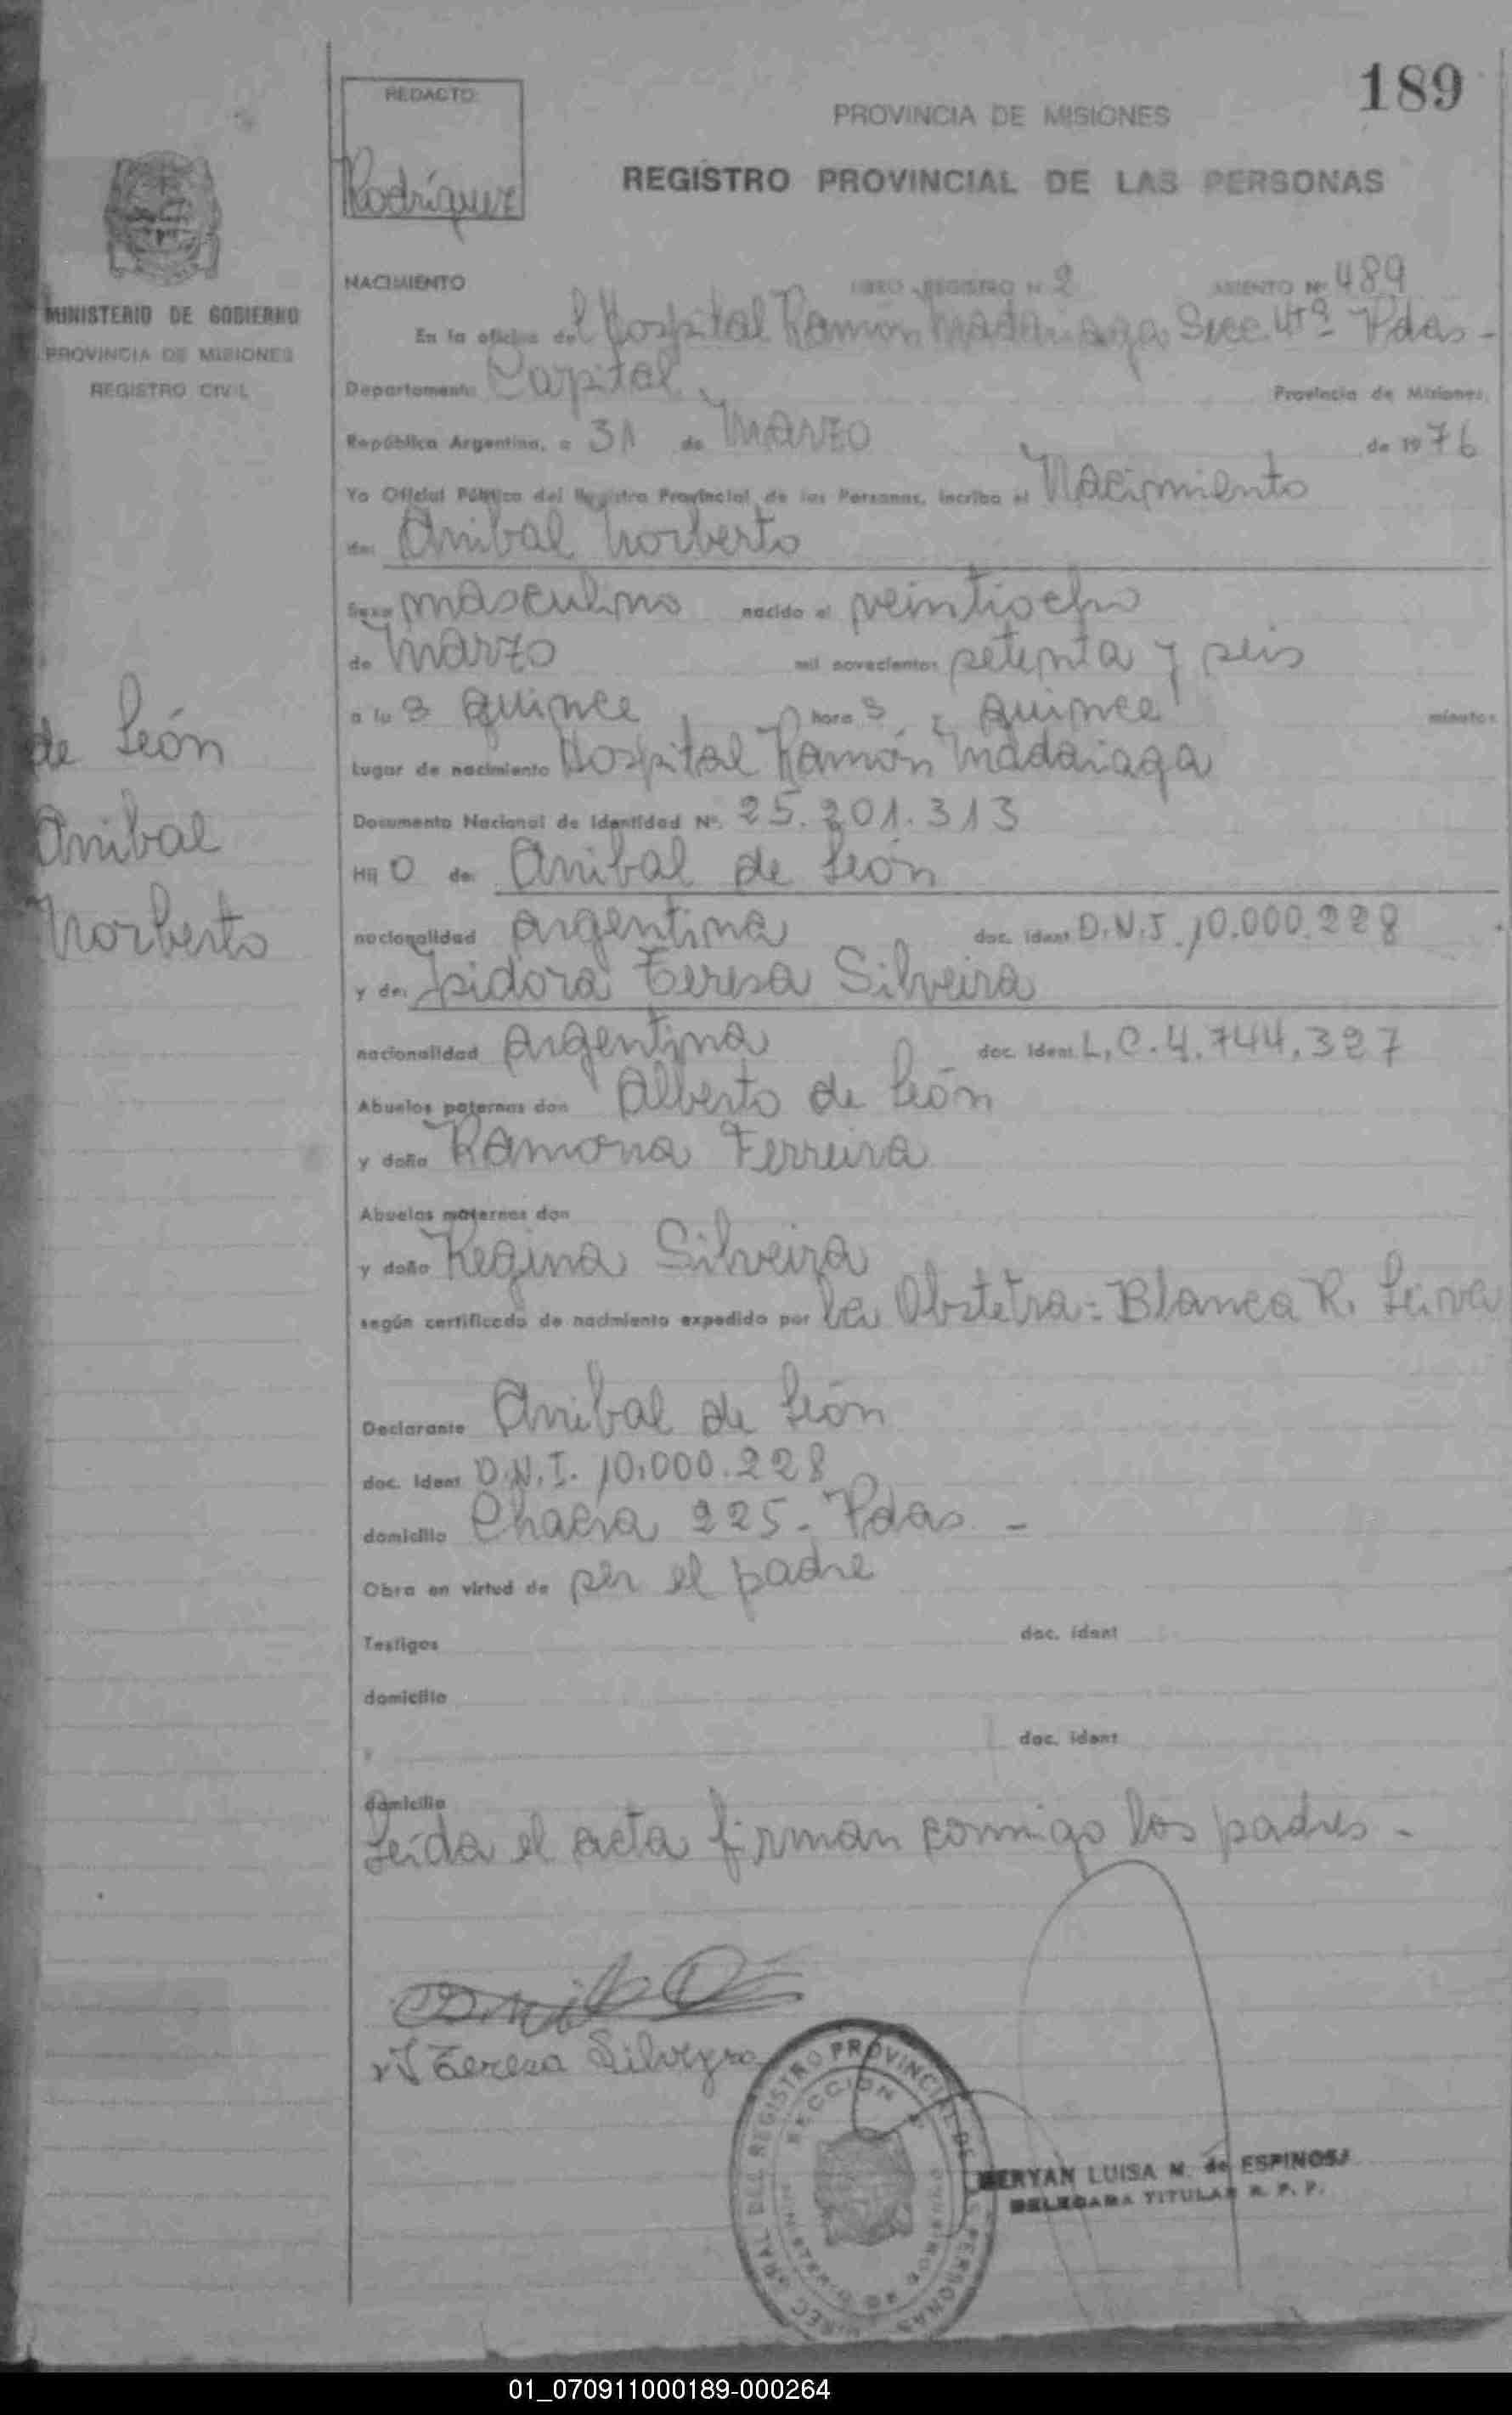 189
REDACTO
Rodríguez
PROVINCIA DE MISIONES
REGISTRO PROVINCIAL DE LAS PERSONAS
MINISTERIO DE GOBIERNO
PROVINCIA DE MISIONES
REGISTRO CIVIL
de León
Anibal
Norberto
NACIMIENTO LIBRO REGISTRO N 2 ASIENTO Nº 489
En la oficina del Hospital Ramón Madariaga Secc. 4ta Pdas-
Departamento Capital Provincia de Misiones,
República Argentina, a 31 de Marzo de 1976
Yo Oficial Público del Registro Provincial de las Personas, incribo el Nacimiento
de: Anibal Norberto
Sexo masculino nacido el veintiocho
de Marzo mil novecientos setenta y seis
a las quince horas y quince minutos
Lugar de nacimiento Hospital Ramón Madariaga
Documento Nacional de Identidad Nº. 25.201.313
Hij o de: Anibal de León
nacionalidad argentina doc. ident D.N.I. 10.000.228
y de: Isidora Teresa Silveira
nacionalidad argentina doc. ident. L.C. 4.744.327
Abuelos paternos don Alberto de León
y doña Ramona Ferreira
Abuelos maternos don
y doña Regina Silveira
según certificado de nacimiento expedido por la Obstetra: Blanca R. Leiva
Declarante Anibal de León
doc. ident D.N.I. 10.000.228
domicilio Chacra 225- Pdas -
Obra en virtud de ser el padre
Testigos doc. ident
domicilio
y doc. ident
domicilio
Leída el acta firman conmigo los padres -
Teresa Silveyra
REGISTRO PROVINCIAL DE LAS PERSONAS
SECCION
MERYAN LUISA M. de ESPINOSA
DELEGADA TITULAR R. P. P.
01_070911000189-000264